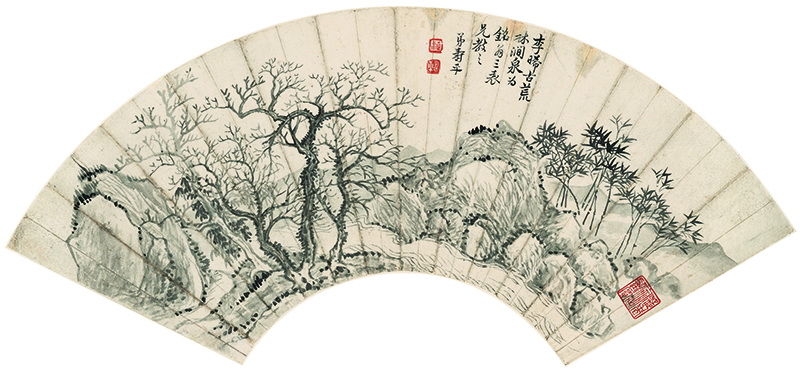 李晞古荒
林澗泉為
銘翁三表
兄教之
弟壽平